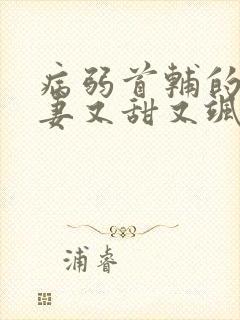 病弱首辅的
妻又甜又飒
浦睿